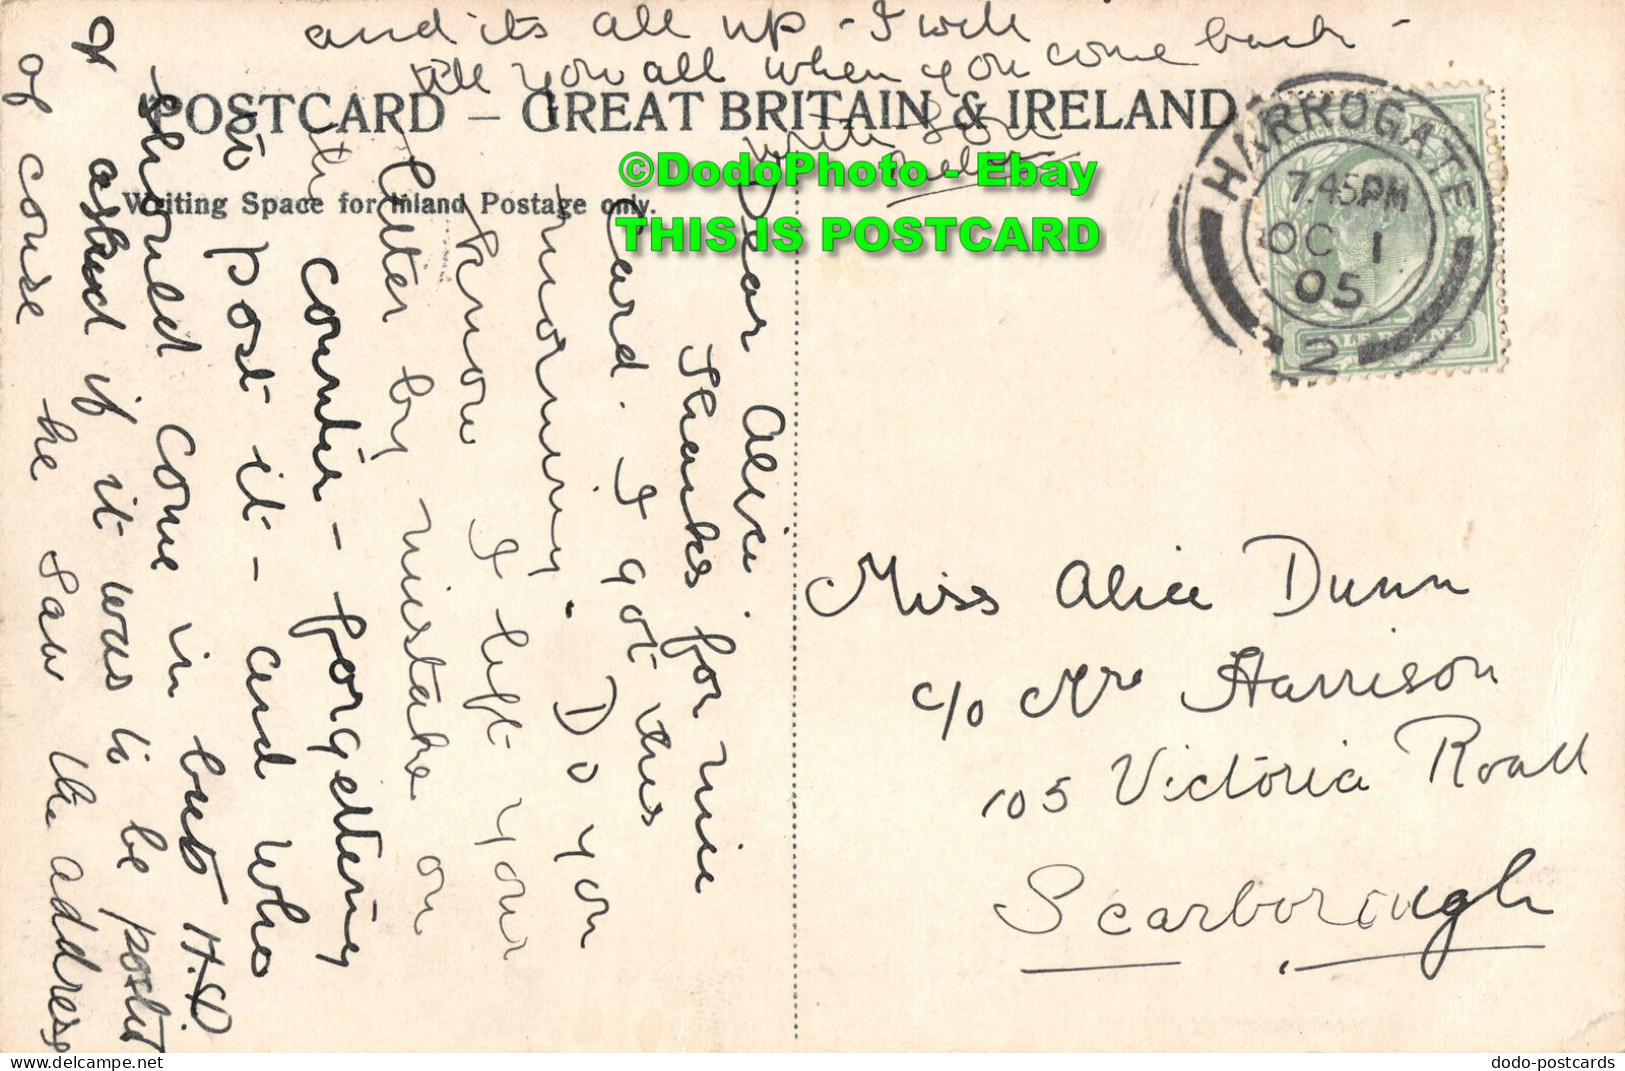 and its all up - I will
tell you all when you come back -
write soon
POSTCARD – GREAT BRITAIN & IRELAND
Writing Space for Inland Postage only.
©DodoPhoto - Ebay
THIS IS POSTCARD
HARROGATE
7.45PM
OC 1
05
2
Dear Alice.
Thanks for nice
Card. I got this
morning. Do you
know I left your
letter by mistake on
the counter - forgetting
to post it - and who
should come in but H.D
& asked if it was to be posted
of course he saw the address
Miss Alice Dunn
c/o Mrs Harrison
105 Victoria Road
Scarborough
dodo-postcards